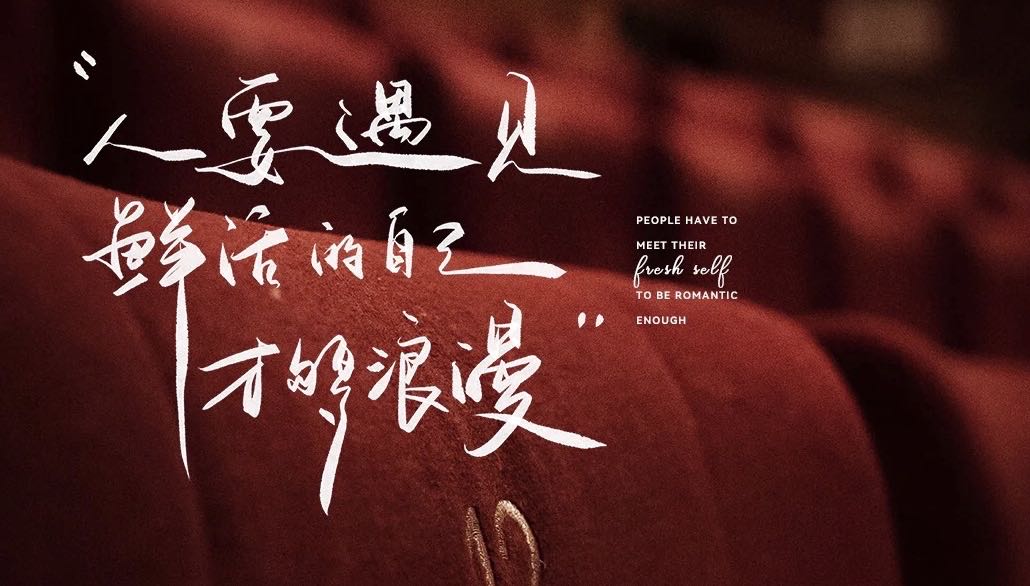 “人要遇见
鲜活的自己
才够浪漫”
PEOPLE HAVE TO
MEET THEIR
fresh self
TO BE ROMANTIC
ENOUGH